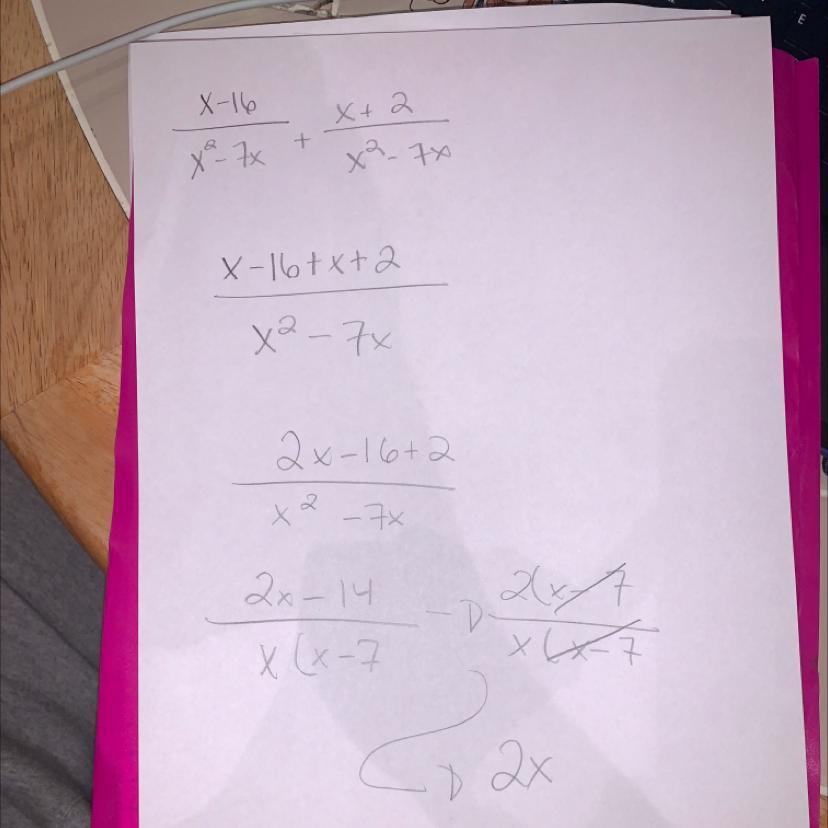 x-16/x²-7x + x+2/x²-7x
x-16+x+2/x²-7x
2x-16+2/x²-7x
2x-14/x(x-7 → 2(x-7/x(x-7
→ 2x
E